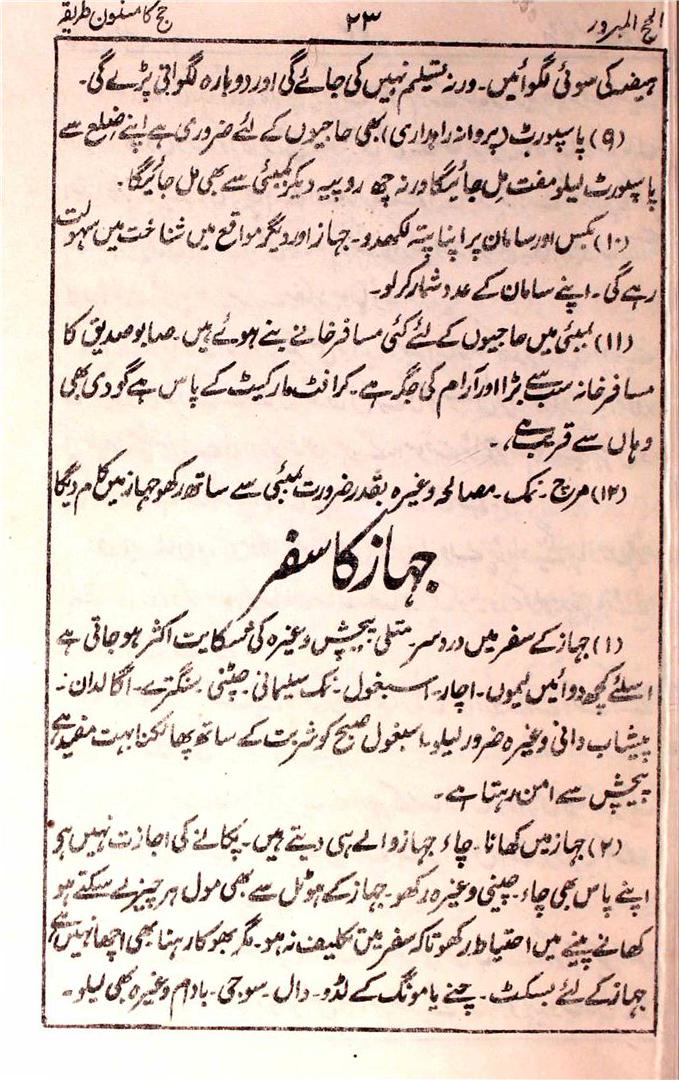 الحج المبرور ۲۳ حج کا مسنون طریقہ
ہیضہ کی سوئی لگوائیں۔ ورنہ تسلیم نہیں کی جائے گی اور دوبارہ لگوانی پڑے گی۔
(۹) پاسپورٹ (پروانہ راہداری) بھی حاجیوں کے لئے ضروری ہے اپنے اضلع سے
پاسپورٹ لیلو مفت مِل جائیگا ورنہ چھ روپیہ دیکر بمبئی سے بھی مل جائیگا۔
(۱۰) بکس اور سامان پر اپنا پتہ لکھدو۔ جہاز اور دیگر مواقع میں شناخت میں سہولت
رہے گی۔ اپنے سامان کے عدد شمار کرلو۔
(۱۱) بمبئی میں حاجیوں کے لئے کئی مسافرخانے بنے ہوئے ہیں۔ صابو صدیق کا
مسافرخانہ سب سے بڑا اور آرام کی جگہ ہے۔ کرافٹ مارکیٹ کے پاس ہے گودی بھی
وہاں سے قریب ہے۔
(۱۲) مرچ۔ نمک۔ مصالحہ وغیرہ بقدر ضرورت بمبئی سے ساتھ رکھو جہاز میں کام دیگا
جہاز کا سفر
(۱) جہاز کے سفر میں دردسر۔ متلی پیچش وغیرہ کی شکایت اکثر ہو جاتی ہے
اسلئے کچھ دوائیں لیموں۔ اچار۔ اسبغول۔ نمک سلیمانی۔ چٹنی۔ سنگترے۔ اگالدان۔
پیشاب دانی وغیرہ ضرور لیلو۔ اسبغول صبح کو شربت کے ساتھ پھانکنا بہت مفید ہے
پیچش سے امن رہتا ہے۔
(۲) جہاز میں کھانا۔ چاء جہاز والے ہی دیتے ہیں۔ پکانے کی اجازت نہیں ہے
اپنے پاس بھی چاء۔ چینی وغیرہ رکھو۔ جہاز کے ہوٹل سے بھی مول ہر چیز لے سکتے ہو
کھانے پینے میں احتیاط رکھو تاکہ سفر میں تکلیف نہ ہو۔ مگر بھوکا رہنا بھی اچھا نہیں ہے
جہاز کے لئے بسکٹ۔ چنے یا مونگ کے لڈو۔ دال۔ سوجی۔ بادام وغیرہ بھی لیلو۔